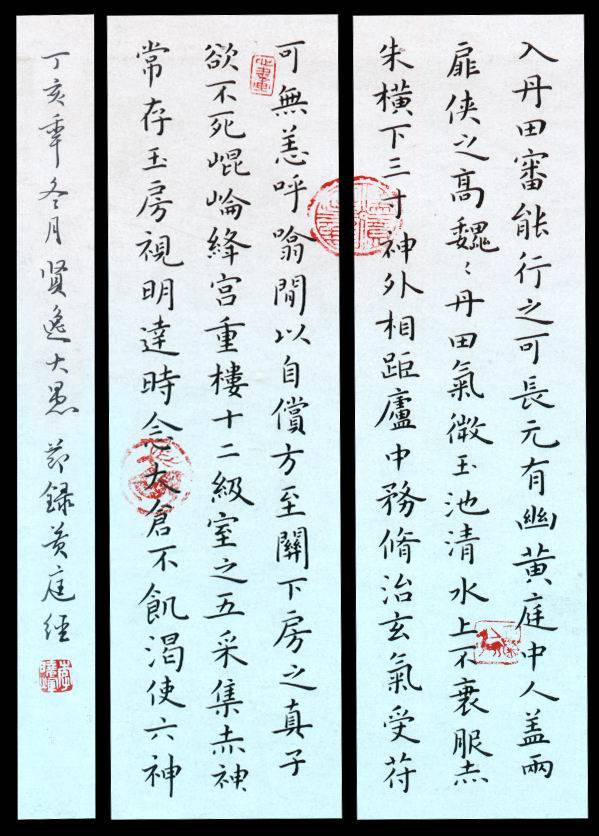 入丹田審能行之可長元有幽黃庭中人盖兩
扉侠之高巍〻丹田氣微玉池清水上不衰服赤
朱橫下三寸神外相距廬中務脩治玄氣受苻
可無恙呼噏間以自償方至關下房之真子
欲不死崐崘絳宫重樓十二級室之五采集赤神
常存玉房視明達時念太倉不飢渴使六神
丁亥秊冬月贤逸大愚 节錄黄庭經